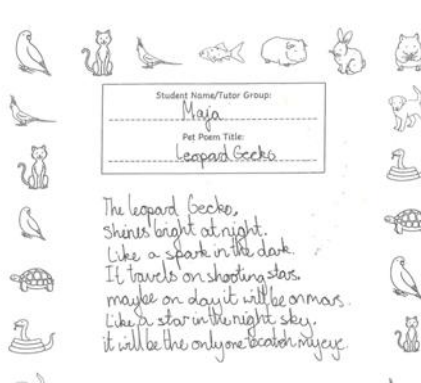 Student Name/Tutor Group:
Maja
Pet Poem Title:
Leopard Gecko
The leopard Gecko,
Shines bright at night.
Like a spark in the dark.
It travels on shooting stars.
maybe on day it will be on mars.
Like a star in the night sky.
it will be the only one to catch my eye.